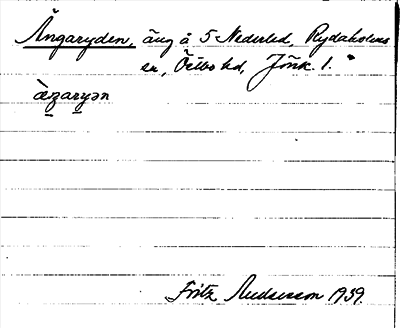 Ängaryden, äng å 5 Nederled, Rydaholms
sn, Östbo hd, Jönk. l.
Fritz Andersson 1939